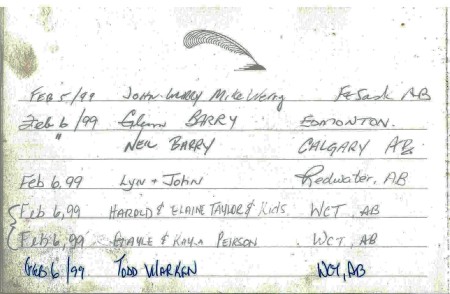 Feb 5/99 John Wally Mike Werny Ft Sask AB
Feb 6/99 Glynn BARRY EDMONTON.
" NEIL BARRY CALGARY AB
Feb 6,99 Lyn + John Redwater, AB
Feb 6,99 HAROLD & ELAINE TAYLOR & Kids WCT, AB
Feb 6,99 GAYLE & KAYLA PEIRSON WCT, AB
FEB 6/99 TODD WARREN WCT, AB